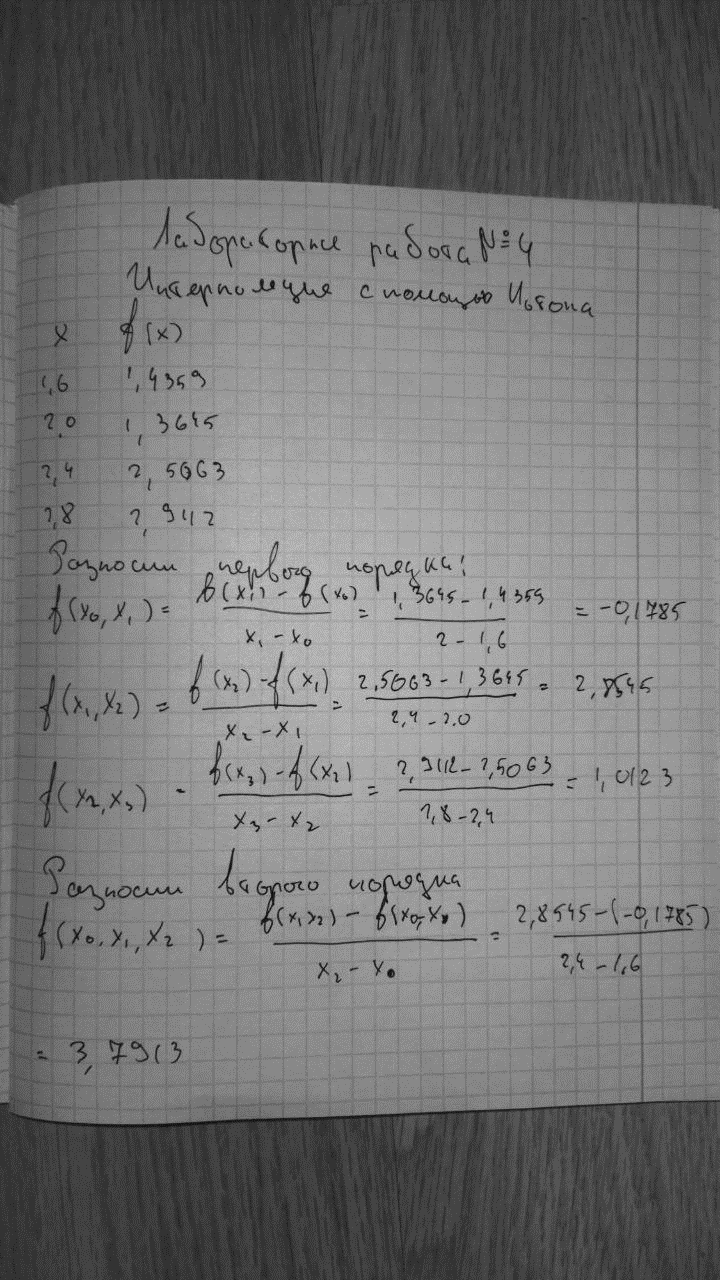 Лабораторные работа №4
Интерполяция с помощью Ньютона
x f(x)
1,6 1,4359
2,0 1,3645
2,4 2,5063
2,8 2,9112
Разности первого порядка:
f(x₀, x₁) = f(x₁) - f(x₀) / x₁ - x₀ = 1,3645 - 1,4359 / 2 - 1,6 = -0,1785
f(x₁, x₂) = f(x₂) - f(x₁) / x₂ - x₁ = 2,5063 - 1,3645 / 2,4 - 2,0 = 2,8545
f(x₂, x₃) - f(x₃) - f(x₂) / x₃ - x₂ = 2,9112 - 2,5063 / 2,8 - 2,4 = 1,0123
Разности второго порядка
f(x₀, x₁, x₂) = f(x₁ x₂) - f(x₀, x₁) / x₂ - x₀ = 2,8545 - (-0,1785) / 2,4 - 1,6
= 3,7913